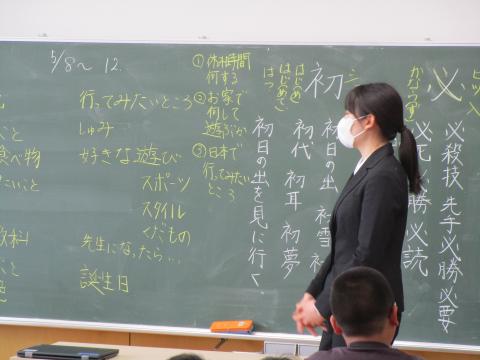 5/8～12.
行ってみたいところ
しゅみ
好きな遊び
スポーツ
スタイル
くだもの
先生になったら…
誕生日
食べ物
① 休み時間
何する
② お家で
何して
遊ぶか
③ 日本で
行ってみたい
ところ
必
かならず
必殺技 先手必勝 必要
必死 必勝 必読
初
はじめ
はじめて
はつ
初日の出 初雪
初代 初耳 初夢
初日の出を見に行く。